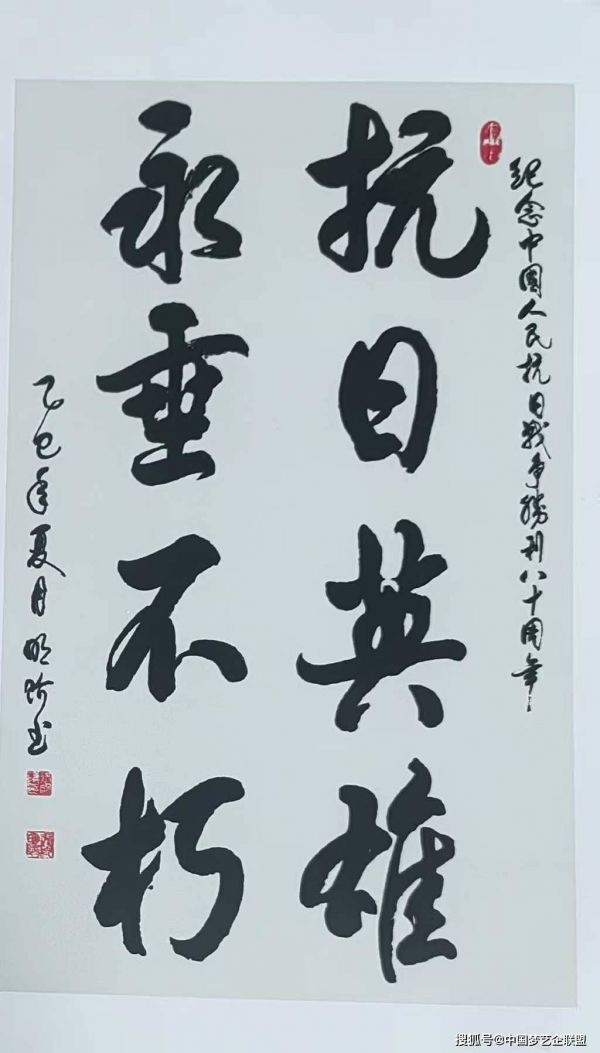 纪念中國人民抗日战争勝利八十周年
抗日英雄
永垂不朽
乙巳年夏月明
搜狐号@中国梦艺企联盟